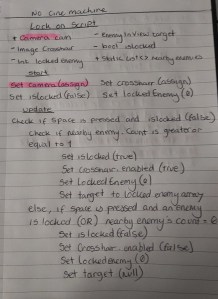 No Cine machine
Lock on Script
+ Camera cam - Enemy InView target
- Image Crosshair - bool isLocked
- int lockedEnemy + Static List nearby enemies
start
Set camera (assign) Set crosshair (assign)
Set isLocked (false) Set lockedEnemy (0)
update
Check if Space is pressed and isLocked (false)
Check if nearby enemy. Count is greater or
equal to 1
Set isLocked (true)
Set crosshair. enabled (true)
Set lockedEnemy (0)
Set target to locked enemy array
else, if Space is pressed and an Enemy
is locked (OR) nearby enemy's count = 0
Set isLocked (false)
Set Crosshair. enabled (false)
Set lockedenemy (0)
Set target (null)